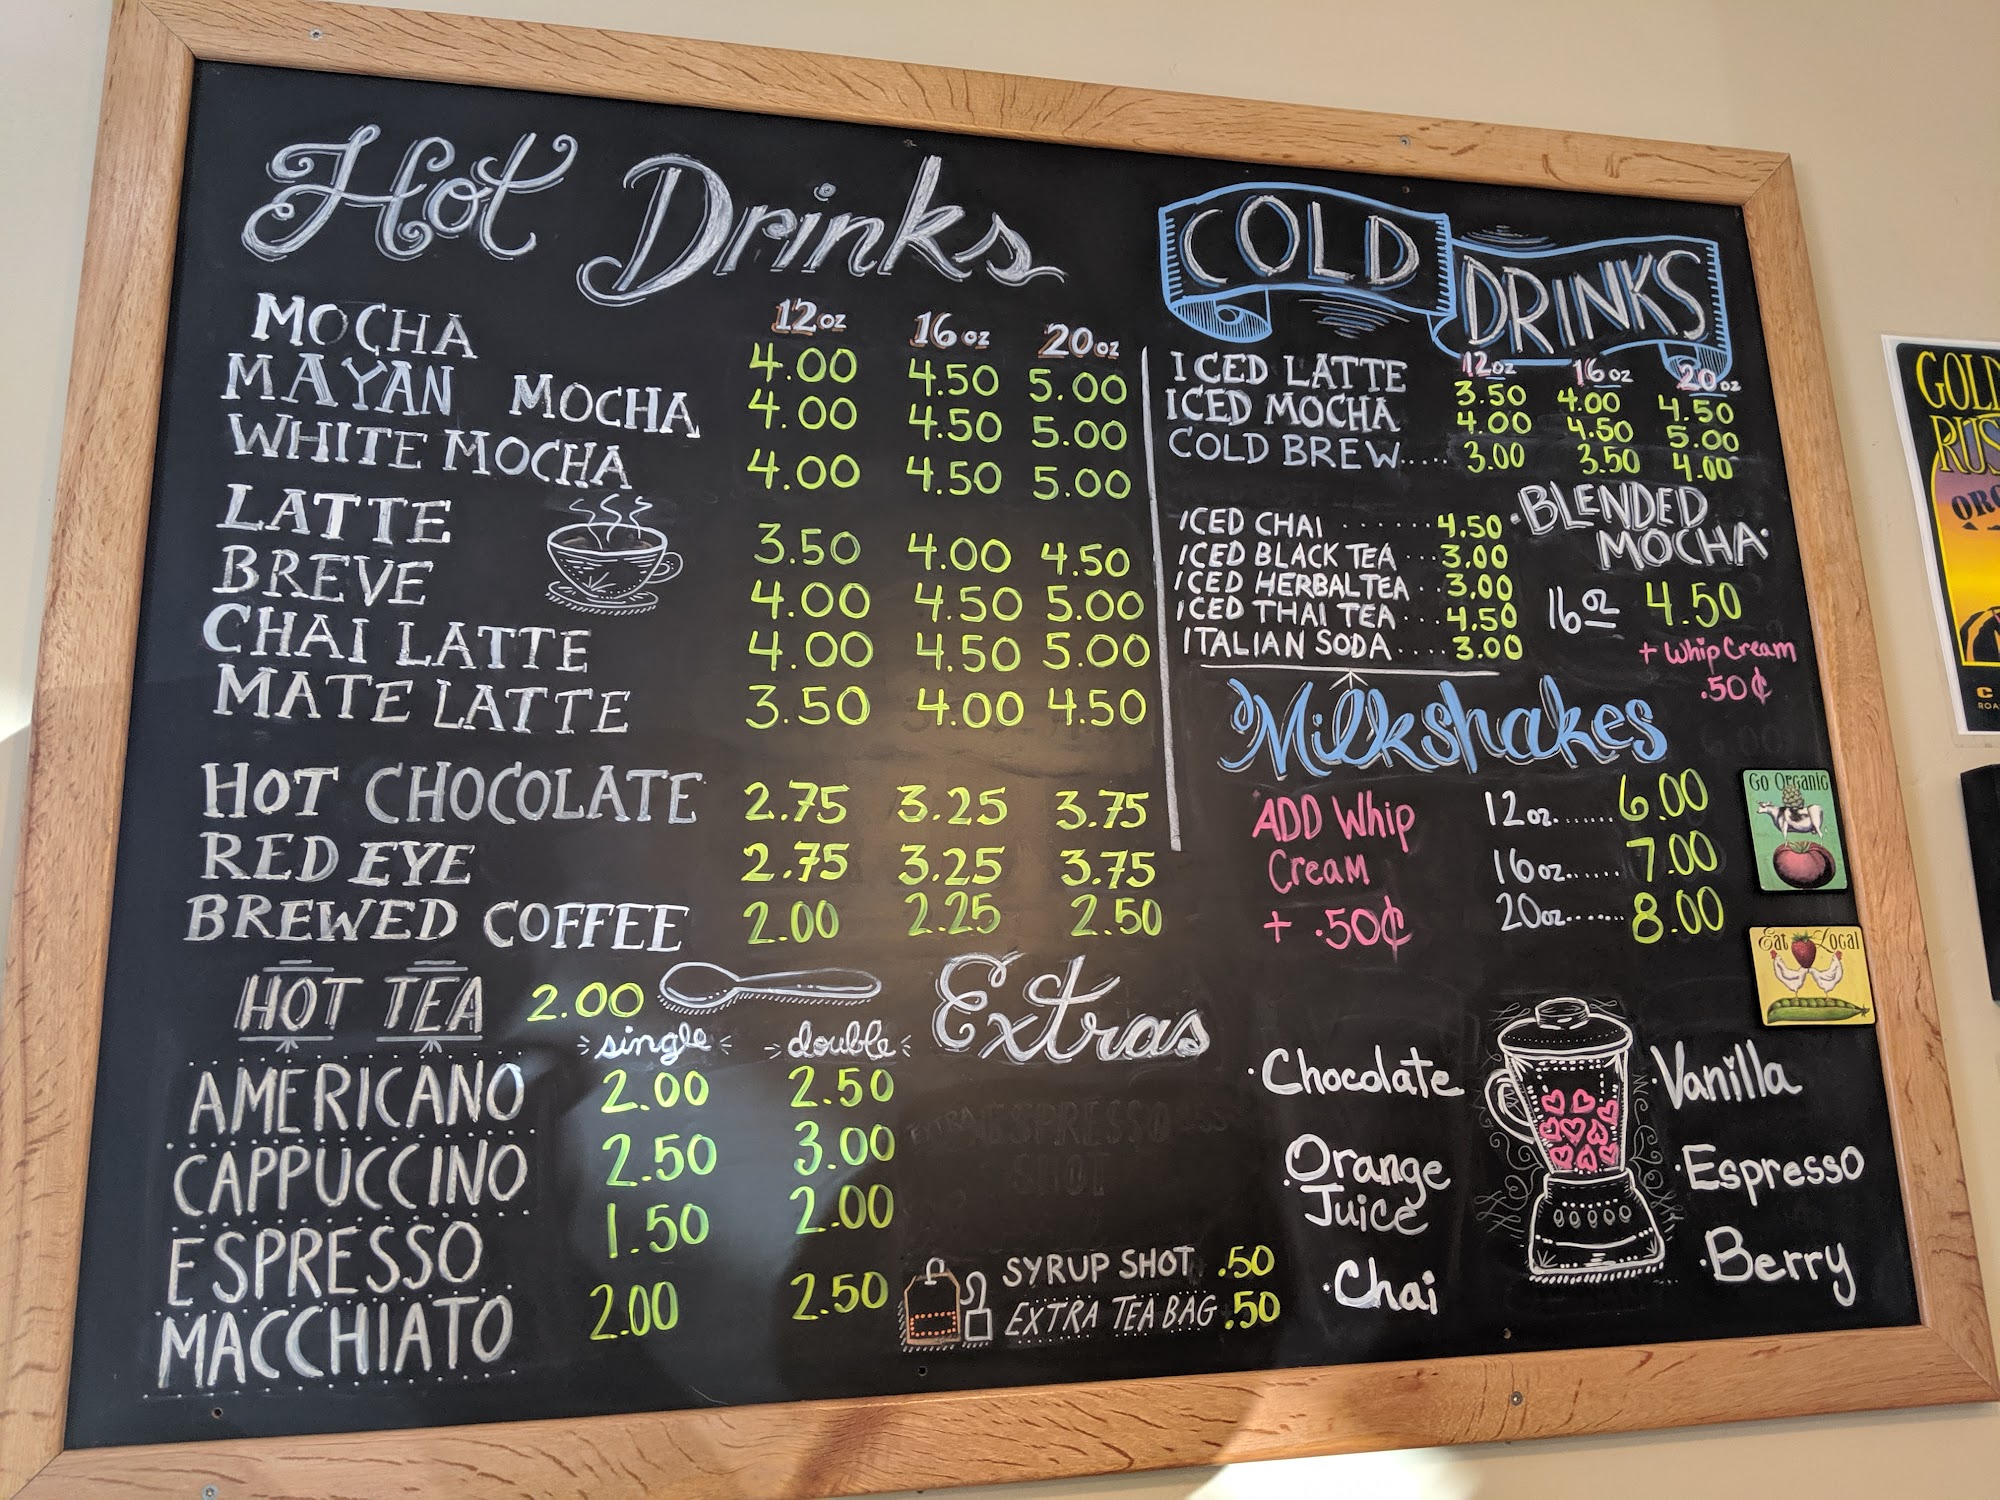 Hot Drinks
12oz 16oz 20oz
MOCHA 4.00 4.50 5.00
MAYAN MOCHA 4.00 4.50 5.00
WHITE MOCHA 4.00 4.50 5.00
LATTE 3.50 4.00 4.50
BREVE 4.00 4.50 5.00
CHAI LATTE 4.00 4.50 5.00
MATE LATTE 3.50 4.00 4.50
HOT CHOCOLATE 2.75 3.25 3.75
RED EYE 2.75 3.25 3.75
BREWED COFFEE 2.00 2.25 2.50
HOT TEA 2.00
single double
AMERICANO 2.00 2.50
CAPPUCCINO 2.50 3.00
ESPRESSO 1.50 2.00
MACCHIATO 2.00 2.50
Extras
ESPRESSO
SHOT
SYRUP SHOT .50
EXTRA TEA BAG .50
COLD DRINKS
12oz 16oz 20oz
ICED LATTE 3.50 4.00 4.50
ICED MOCHA 4.00 4.50 5.00
COLD BREW..... 3.00 3.50 4.00
ICED CHAI ....... 4.50
ICED BLACK TEA ... 3.00
ICED HERBAL TEA .. 3.00
ICED THAI TEA ... 4.50
ITALIAN SODA .... 3.00
·BLENDED
MOCHA·
16oz 4.50
+ Whip Cream
.50¢
Milkshakes
ADD Whip
Cream
+ .50¢
12oz....... 6.00
16oz....... 7.00
20oz....... 8.00
·Chocolate
·Orange
Juice
·Chai
·Vanilla
·Espresso
·Berry
Go Organic
Eat Local
GOLD